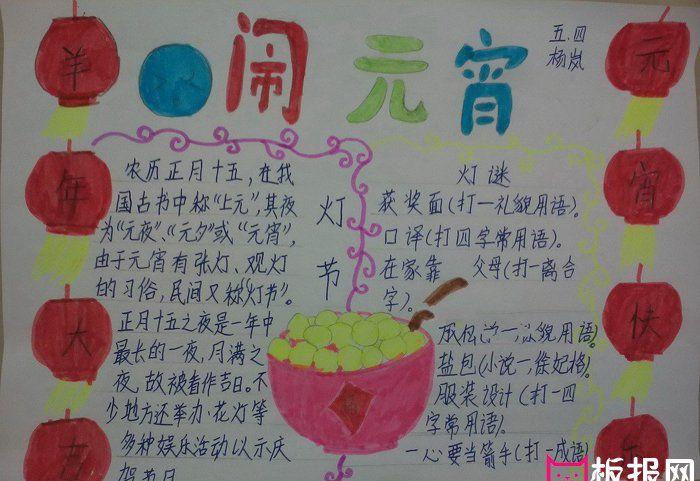 闹元宵
五.四
杨岚
羊年大吉
元宵快乐
农历正月十五,在我
国古书中称“上元”,其夜
为“元夜”、“元夕”或“元宵”,
由于元宵有张灯、观灯
的习俗,民间又称“灯节”。
正月十五之夜是一年中
最长的一夜,月满之
夜,故被看作吉日。不
少地方还举办花灯等
多种娱乐活动以示庆
贺节日
灯节
灯谜
获奖面(打一礼貌用语)。
口译(打四字常用语)。
在家靠 父母(打一离合
字)。
礼貌用语)。
盐包(小说一
服装设计(打一四
字常用语)。
一心要当箭手(打一成语)
板报网